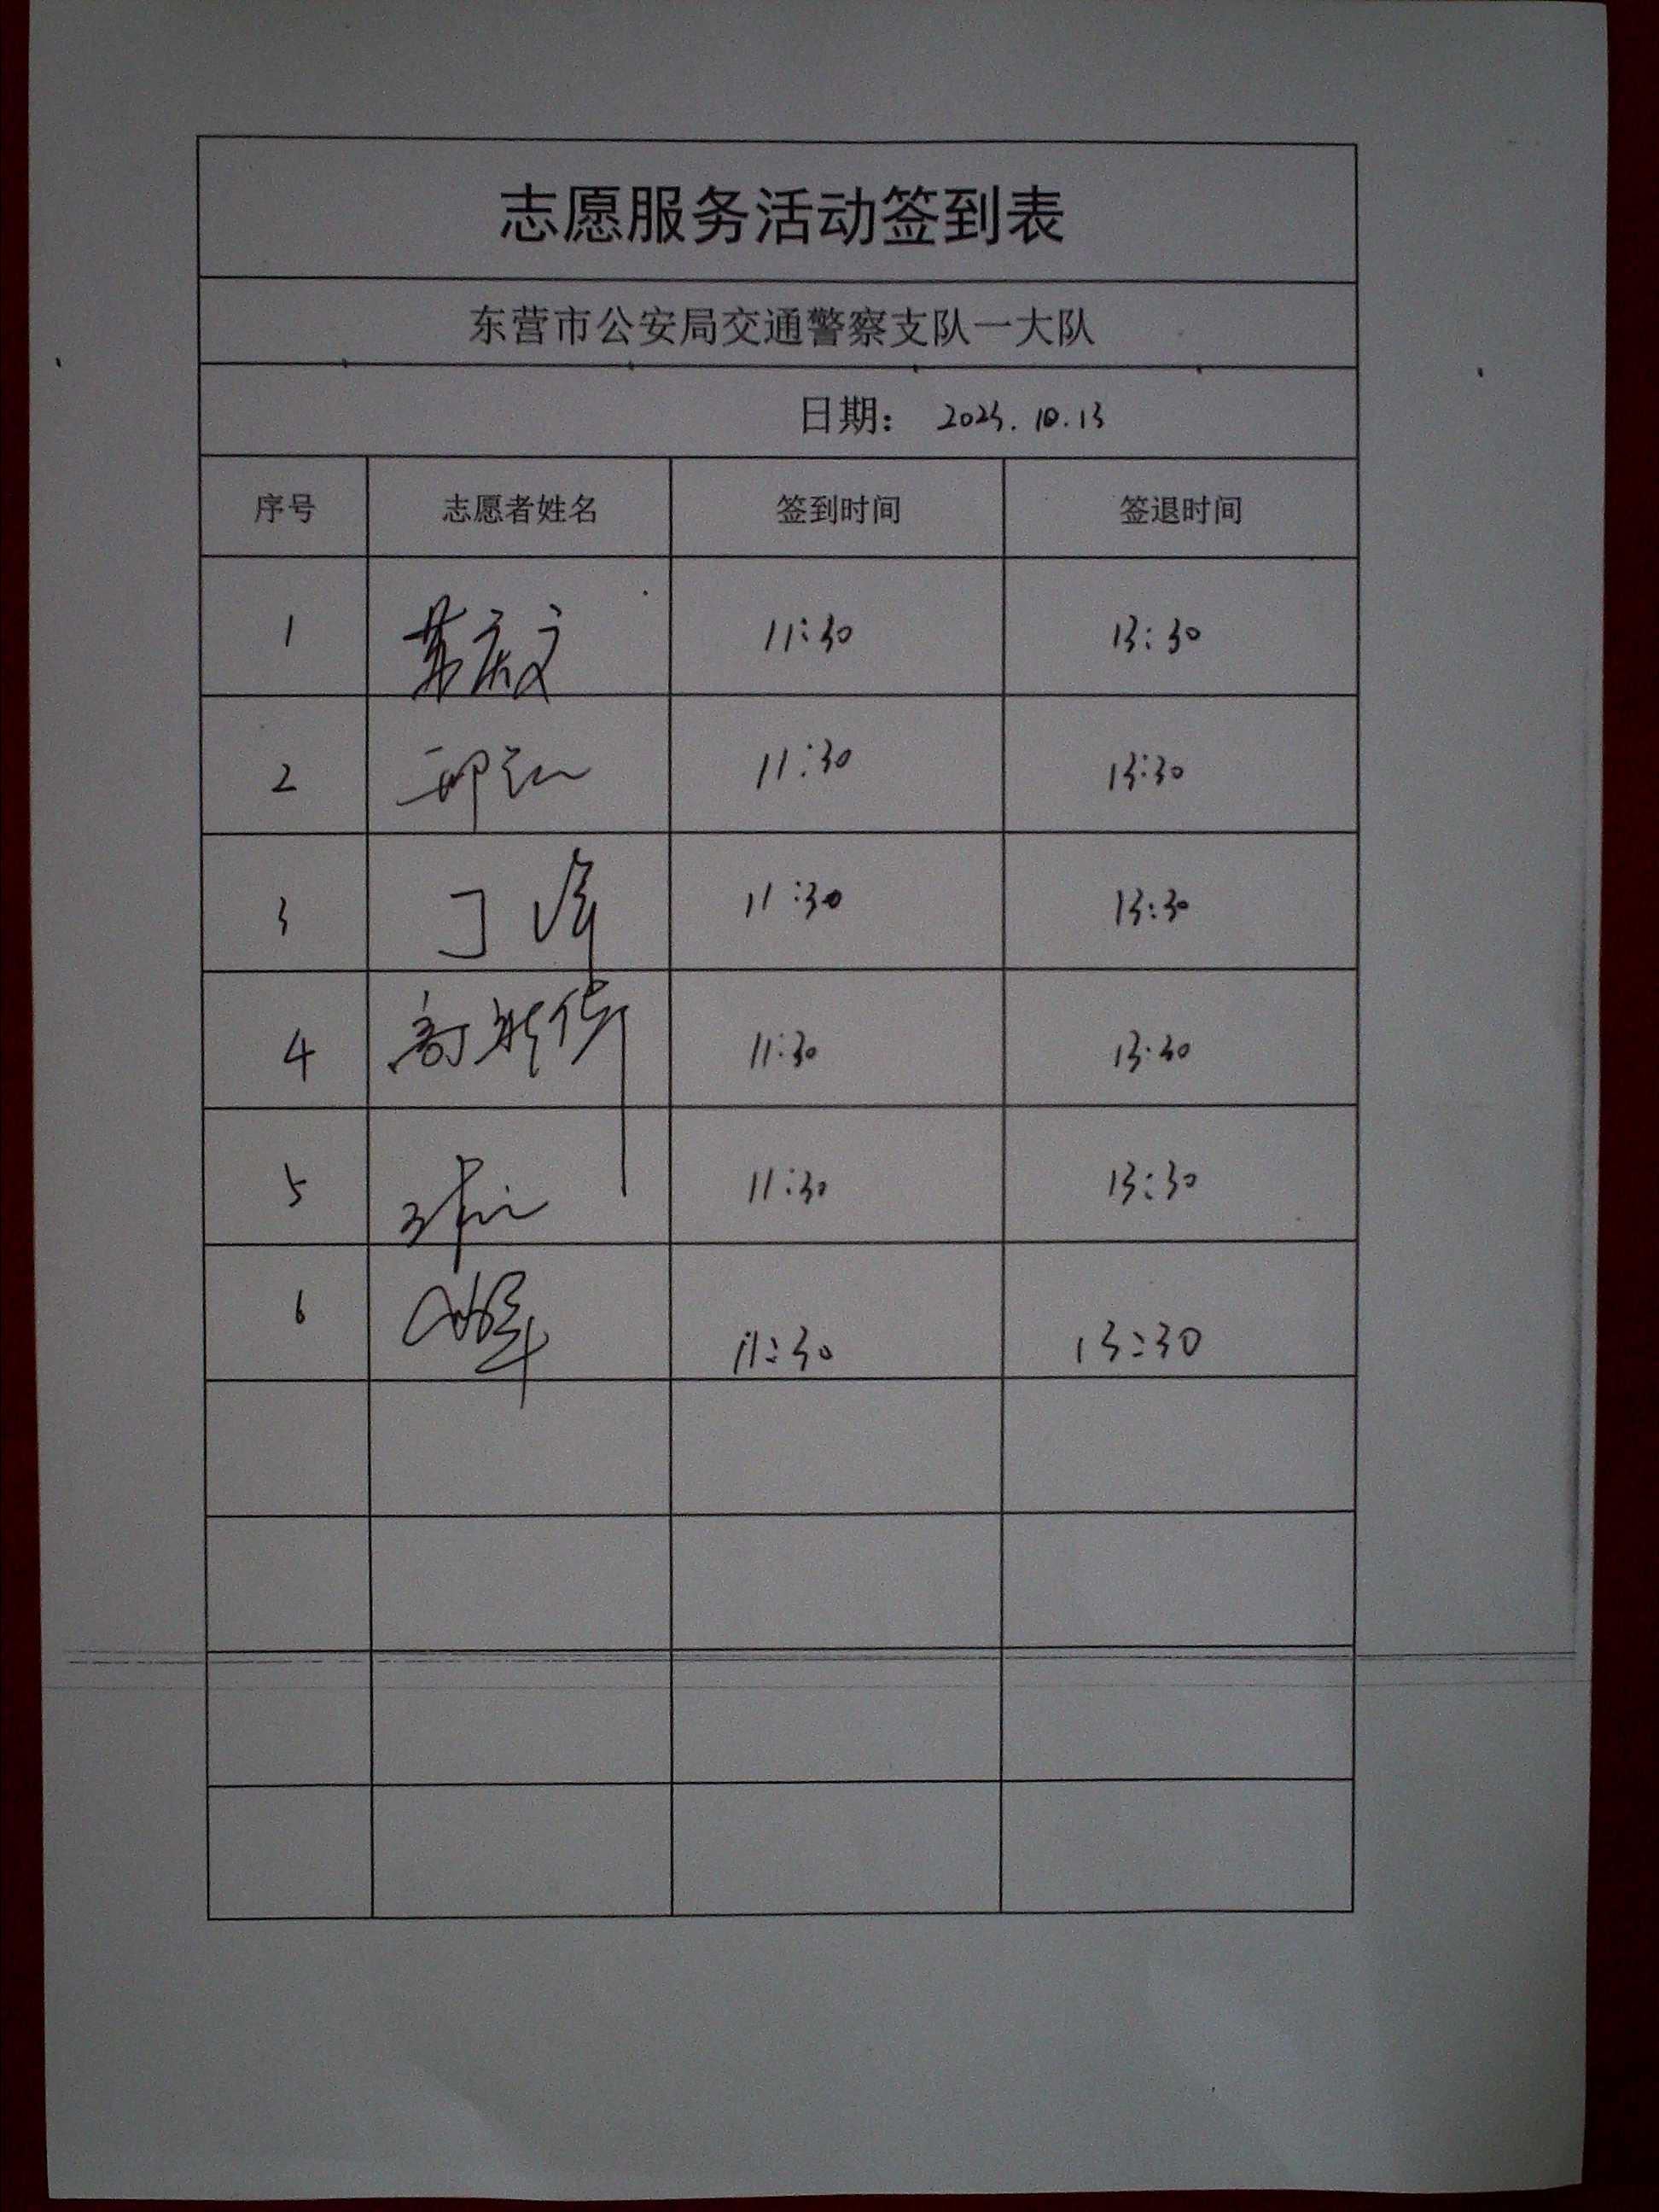 志愿服务活动签到表
东营市公安局交通警察支队一大队
日期： 2023.10.13
序号 志愿者姓名 签到时间 签退时间
1 11:30 13:30
2 11:30 13:30
3 丁峰 11:30 13:30
4 11:30 13:30
5 11:30 13:30
6 11:30 13:30